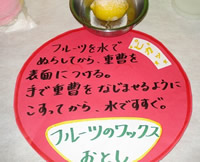 フルーツを水で
ぬらしてから、重曹を
表面につける。
手で重曹をなじませるように
こすってから、水ですすぐ。
フルーツのワックス
おとし